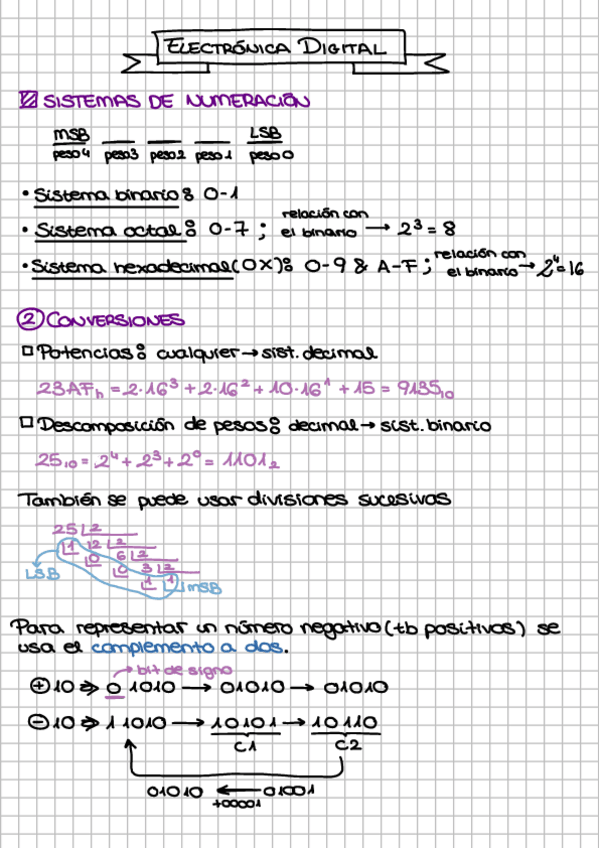 ELECTRÓNICA DIGITAL
SISTEMAS DE NUMERACIÓN
MSB LSB
peso4 peso3 peso2 peso1 peso0
• Sistema binario: 0-1
• Sistema octal: 0-7 ; relación con el binario → 2³ = 8
• Sistema hexadecimal (0X): 0-9 & A-F ; relación con el binario → 2⁴ = 16
② CONVERSIONES
□ Potencias: cualquier → sist. decimal
23AFₕ = 2·16³ + 2·16² + 10·16¹ + 15 = 9135₁₀
□ Descomposición de pesos: decimal → sist. binario
25₁₀ = 2⁴ + 2³ + 2⁰ = 1101₂
También se puede usar divisiones sucesivas
25 2
1 12 2
0 6 2
0 3 2
1 1
LSB MSB
Para representar un número negativo (tb positivos) se
usa el complemento a dos.
→ bit de signo
⊕ 10 ⇒ 0 1010 → 01010 → 01010
⊖ 10 ⇒ 1 1010 → 10101 → 10110
C1 C2
01010 ← 01001
+00001